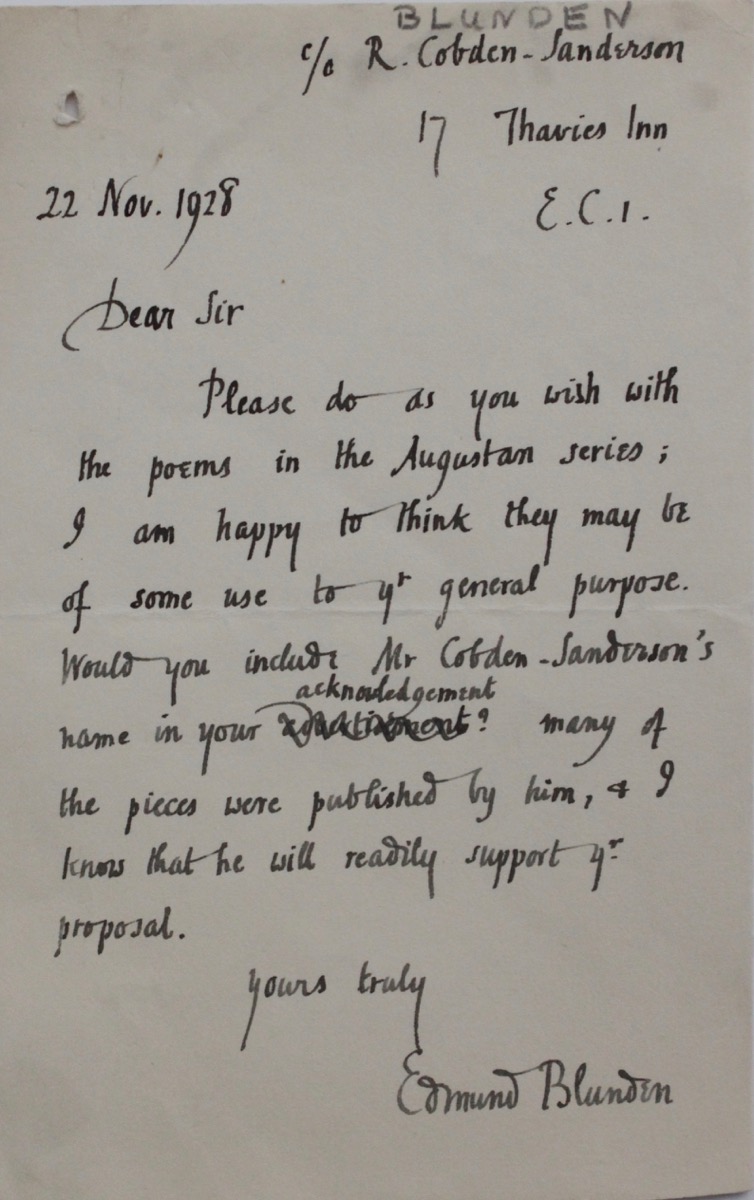 BLUNDEN
c/o R. Cobden-Sanderson
17 Thavies Inn
22 Nov. 1928
E.C.1.
Dear Sir
Please do as you wish with
the poems in the Augustan series;
I am happy to think they may be
of some use to yr general purpose.
Would you include Mr Cobden-Sanderson's
acknowledgement
name in your ? many of
the pieces were published by him, & I
know that he will readily support yr
proposal.
yours truly
Edmund Blunden